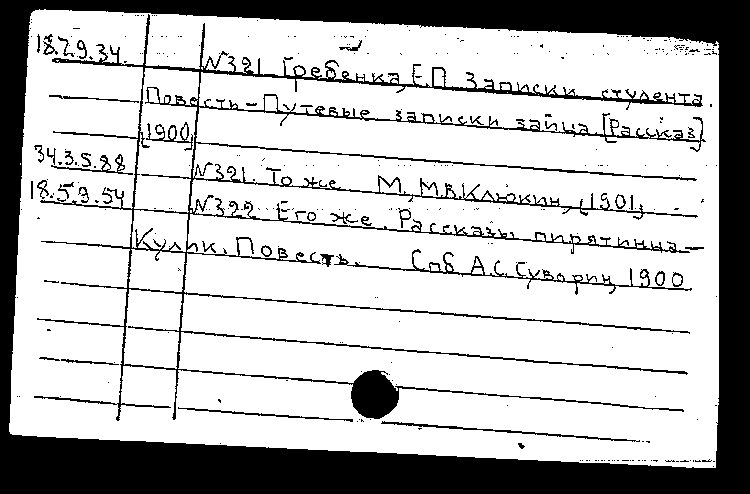 18.7.9.34. №321. Гребенка, Е.П. Записки студента.
Повесть - Путевые записки зайца. [Рассказ]
[1900]
34.3.5.88 №321. То же М., М.В. Клюкин, [1901]
18.5.9.54 №322 Его же. Рассказы пирятинца -
Кулик. Повесть. Спб. А.С. Суворин, 1900